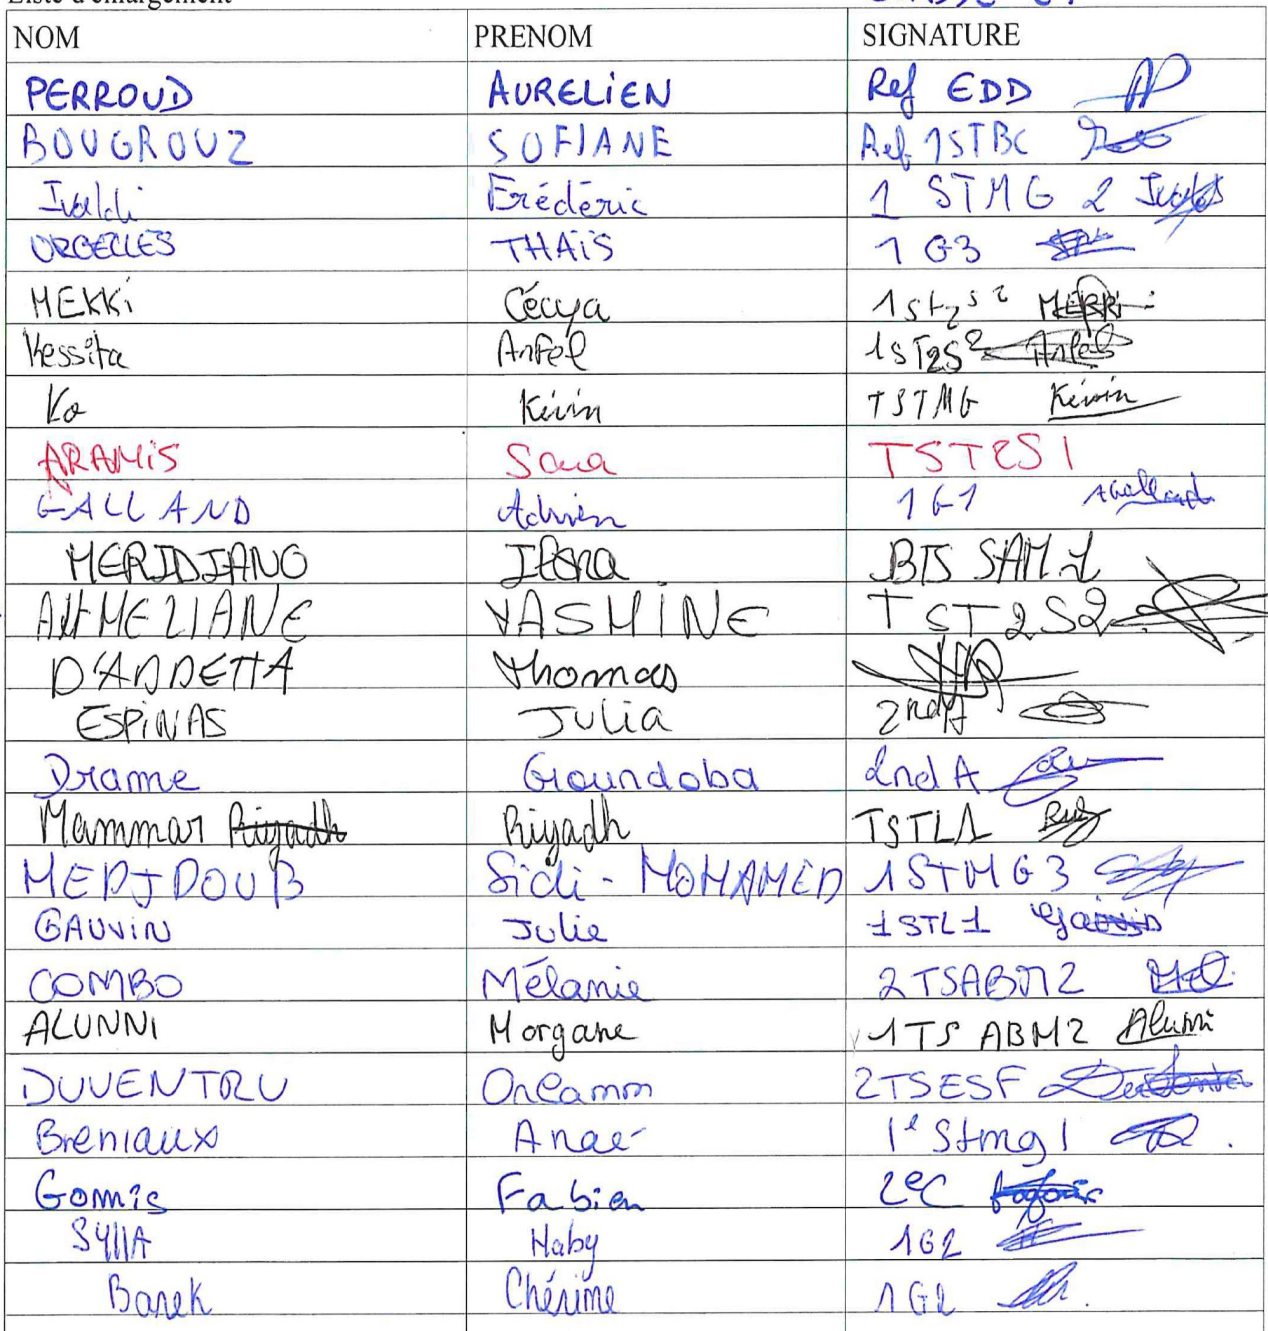 Liste d'émargement
NOM PRENOM SIGNATURE
PERROUD AURELIEN Ref EDD AP
BOUGROUZ SOFIANE Ref 1STBC
Ivaldi Frédéric 1 STMG 2
URGELLES THAÏS 1 G3
MEKKi Cécya 1st2s2 MEKKi
Kessita Anfel 1ST2S2 Anfel
Vo Kévin TSTMG Kévin
ARAMiS Sara TST2S1
GALLAND Adrien 1G1 AGalland
MERIDJANO Ilona BTS SAM 1
AïtMEZIANE YASMINE TST2S2
Thomas
ESPiNAS Julia 2ndA
Drame Goundoba 2nd A
Mammar Riyadh Riyadh TSTL1
MEDJDOUB Sidi-MOHAMED 1STMG3
GAUViN Julie 1STL1
COMBO Mélanie 2TSABM2 Mel
ALUNNI Morgane 1TS ABM2 Alunni
DUVENTRU Orlamm 2TSESF
Breniaux Anaé 1e Stmg1
Gomis Fabien 2eC
SyllA Haby 1G2
Barek Chérine 1G2